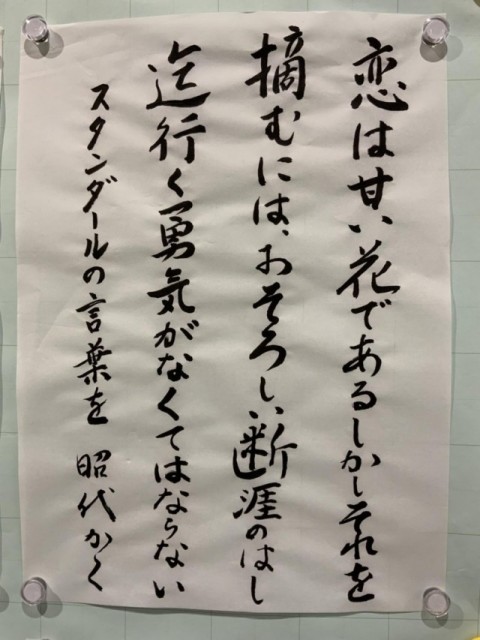 恋は甘い花であるしかしそれを
摘むには、おそろしい断涯のはし
迄行く勇気がなくてはならない
スタンダールの言葉を 昭代かく